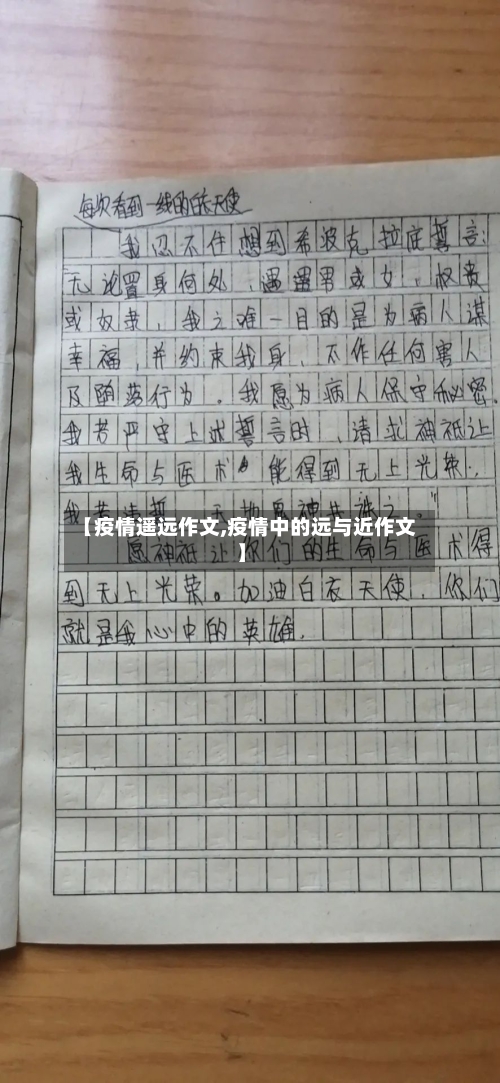 每次看到一线的白衣天使
我忍不住想到希波克拉底誓言:
无论置身何处,遇男或女,权贵
或奴隶,我之唯一目的是为病人谋
幸福,并约束我身,不作任何害人
及堕落行为。我愿为病人保守秘密。
我若严守上述誓言时,请求神祗让
我生命与医术能得到无上光荣;
我若违誓,天地鬼神共诛之。"
【疫情遥远作文,疫情中的远与近作文
】
愿神祗让你们的生命与医术得
到无上光荣。加油白衣天使,你们
就是我心中的英雄.